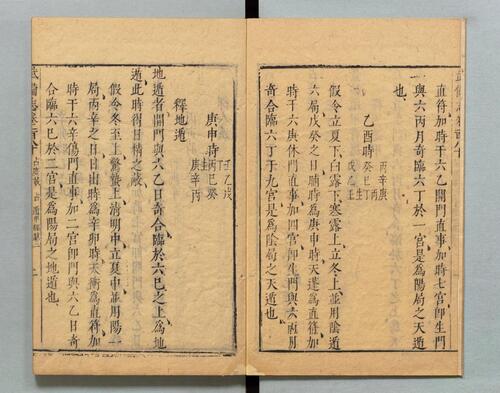 直符加時干六乙開門直事加時七宮即生門
與六丙月奇臨六丁於一宮是為陽局之天遁
也
丙辛庚
乙酉時 癸巳丁丙
戊乙壬
假令立夏下白露下寒露上立冬上並用陰遁
六局戊癸之日晡時為庚申時天蓬為直符加
時干六庚休門直事加四宮即生門與六丙月
奇合臨六丁于九宮是為陰局之天遁也
釋地遁
地遁者開門與六乙日奇合臨於六巳之上為地
遁此時得日精之蔽
假令冬至上驚蟄上清明中立夏中並用陽一
局丙辛之日日出時為辛卯時天衝為直符加
時干六辛傷門直事加二宮即開門與六乙日奇
合臨六巳於二宮是為陽局之地遁也